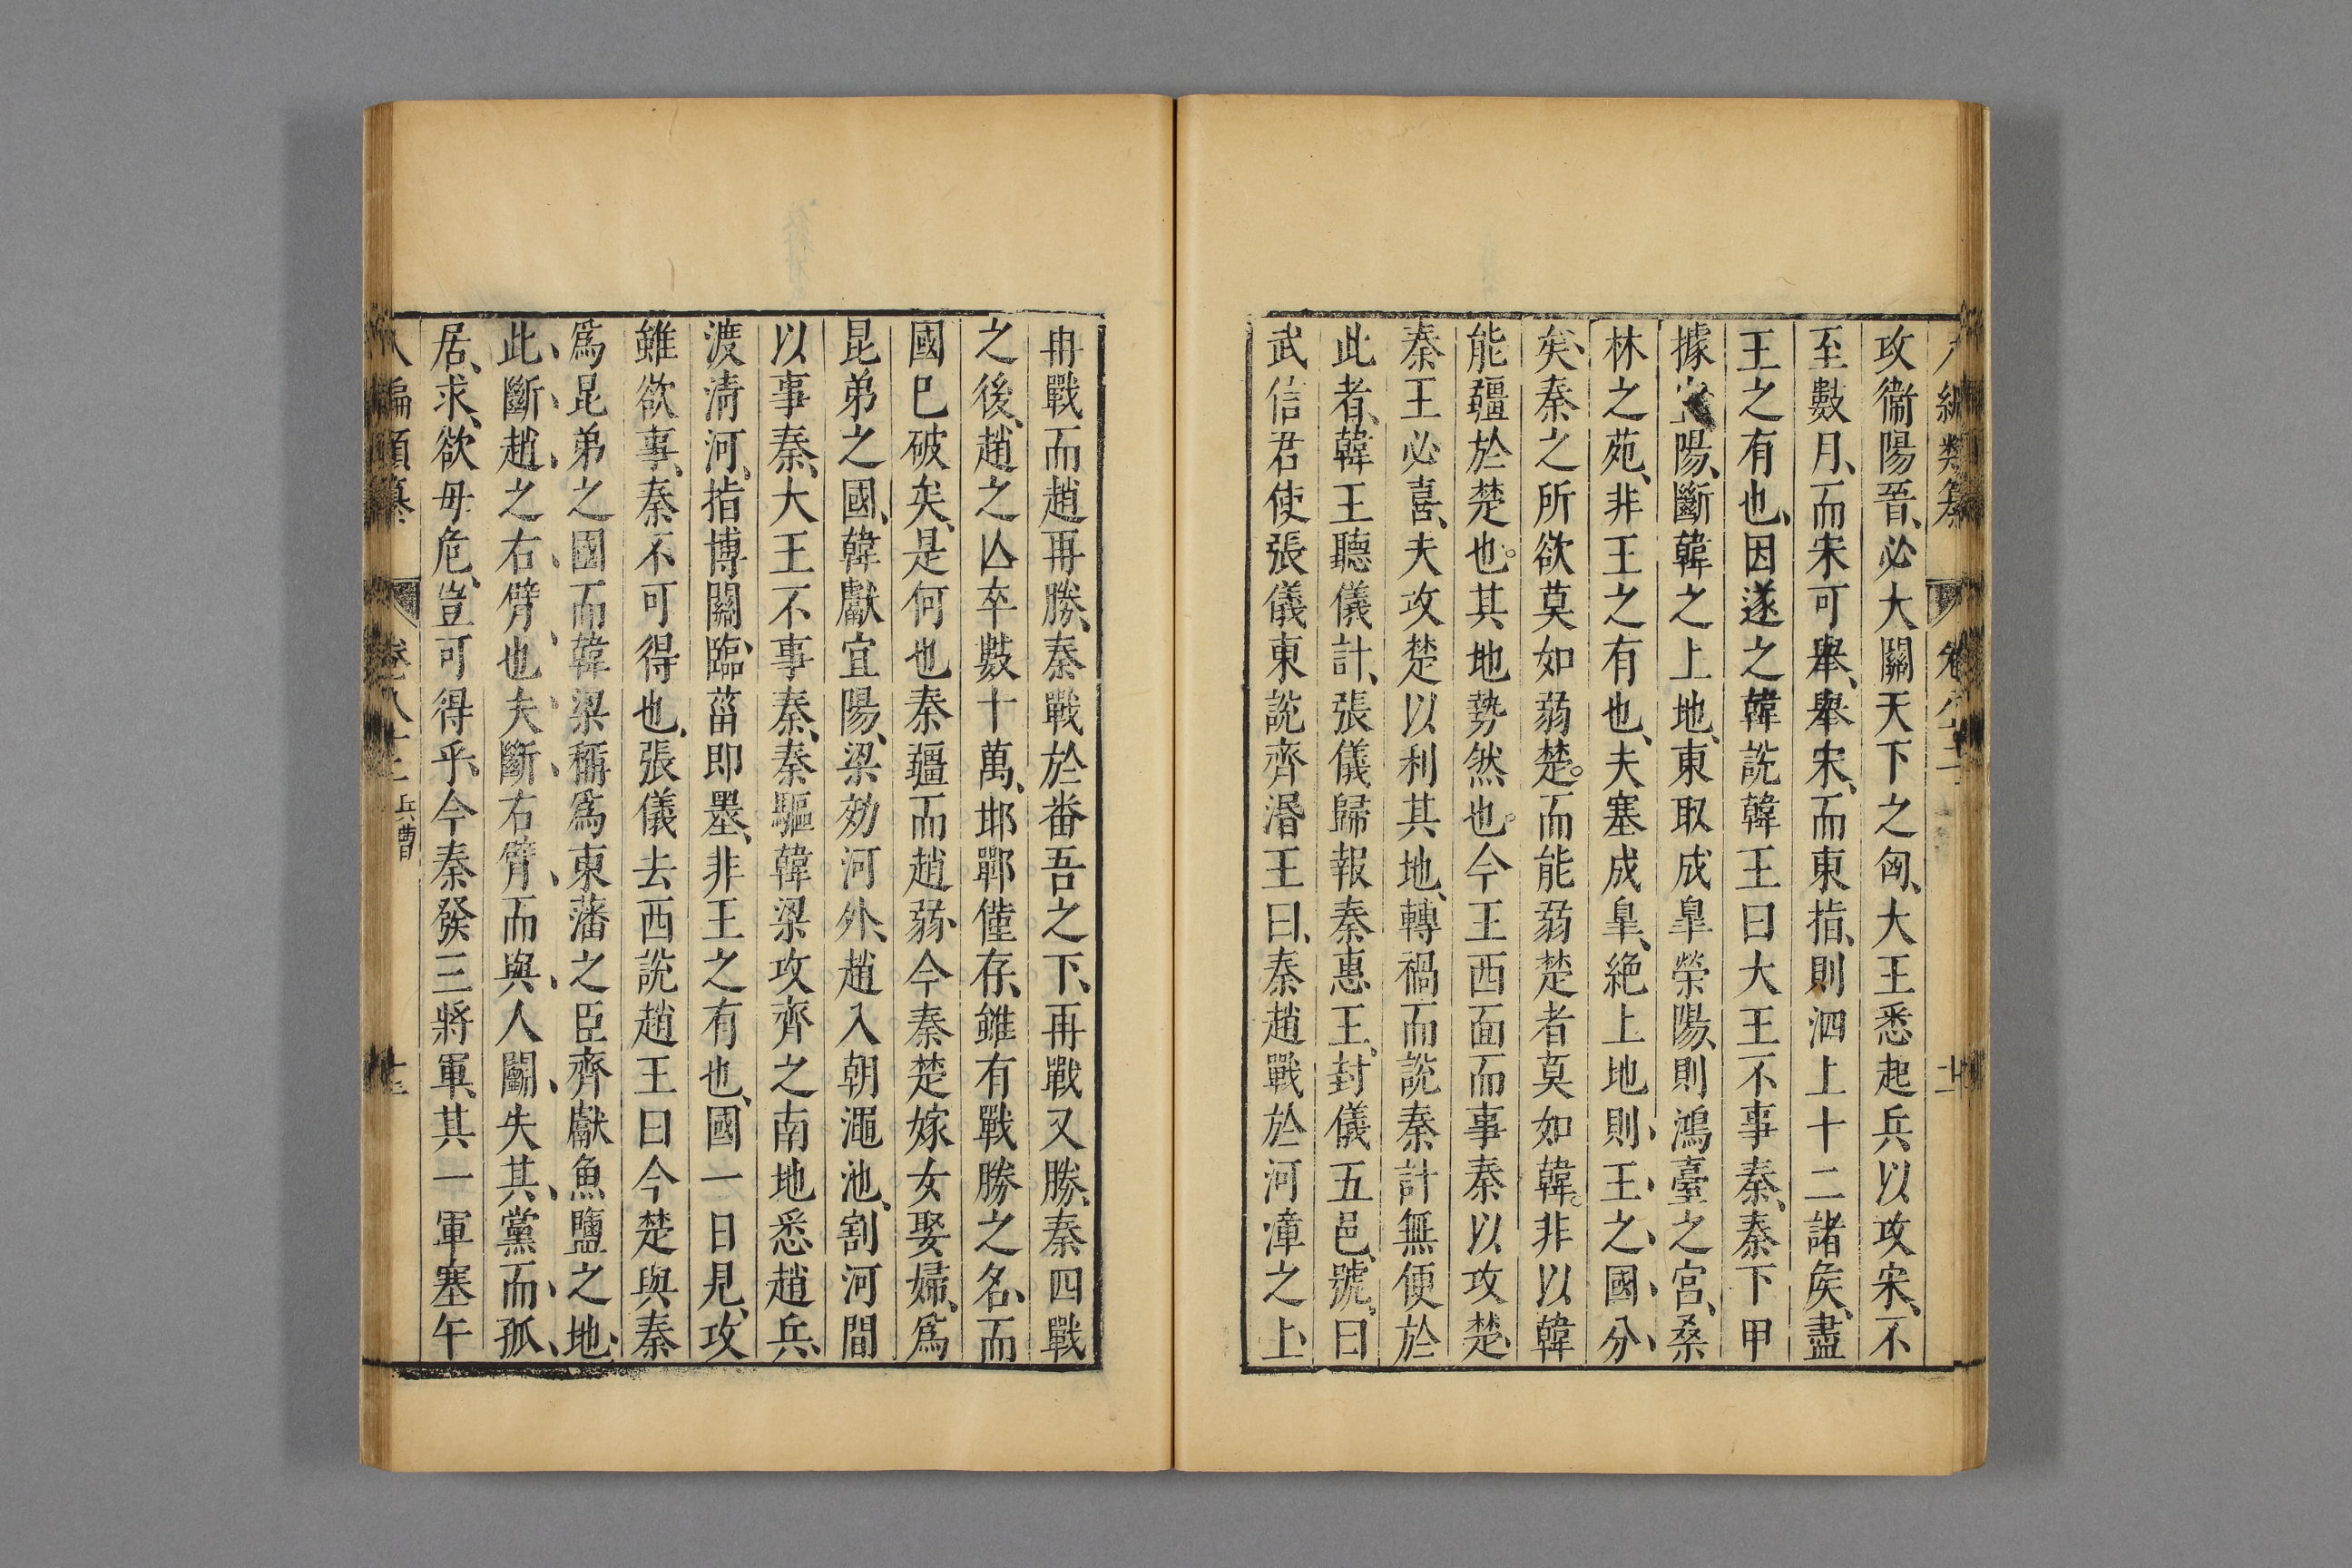 攻衞陽晉、必大關天下之匈、大王悉起兵以攻宋、不
至數月、而宋可舉、舉宋、而東指、則泗上十二諸矦、盡
王之有也、因遂之韓說韓王曰大王不事秦、秦下甲
據宜陽、斷韓之上地、東取成皐滎陽、則鴻臺之宮、桑
林之苑、非王之有也、夫塞成皐、絶上地則王之國分
矣、秦之所欲莫如弱楚。而能弱楚者莫如韓。非以韓
能彊於楚也。其地勢然也。今王西面而事秦以攻楚、
秦王必喜、夫攻楚以利其地、轉禍而說秦計無便於
此者、韓王聽儀計、張儀歸報秦惠王、封儀五邑、號曰
武信君使張儀東說齊湣王曰、秦趙戰於河漳之上、
再戰而趙再勝、秦戰於番吾之下、再戰又勝、秦四戰
之後、趙之亾卒數十萬、邯鄲僅存、雖有戰勝之名、而
國已破矣、是何也秦彊而趙弱、今秦楚嫁女娶婦、爲
昆弟之國、韓獻宜陽、梁効河外、趙入朝澠池、割河間
以事秦、大王不事秦、秦驅韓梁攻齊之南地悉趙兵、
渡清河、指博關、臨菑即墨、非王之有也、國一日見攻、
雖欲事、秦不可得也、張儀去西說趙王曰今楚與秦
爲昆弟之國而韓梁稱爲東藩之臣齊獻魚鹽之地、
此斷趙之右臂也夫斷右臂而與人鬭失其黨而孤
居、求、欲毋危、豈可得乎、今秦發三將軍、其一軍塞午
編類纂 卷八十三 兵曹 十三